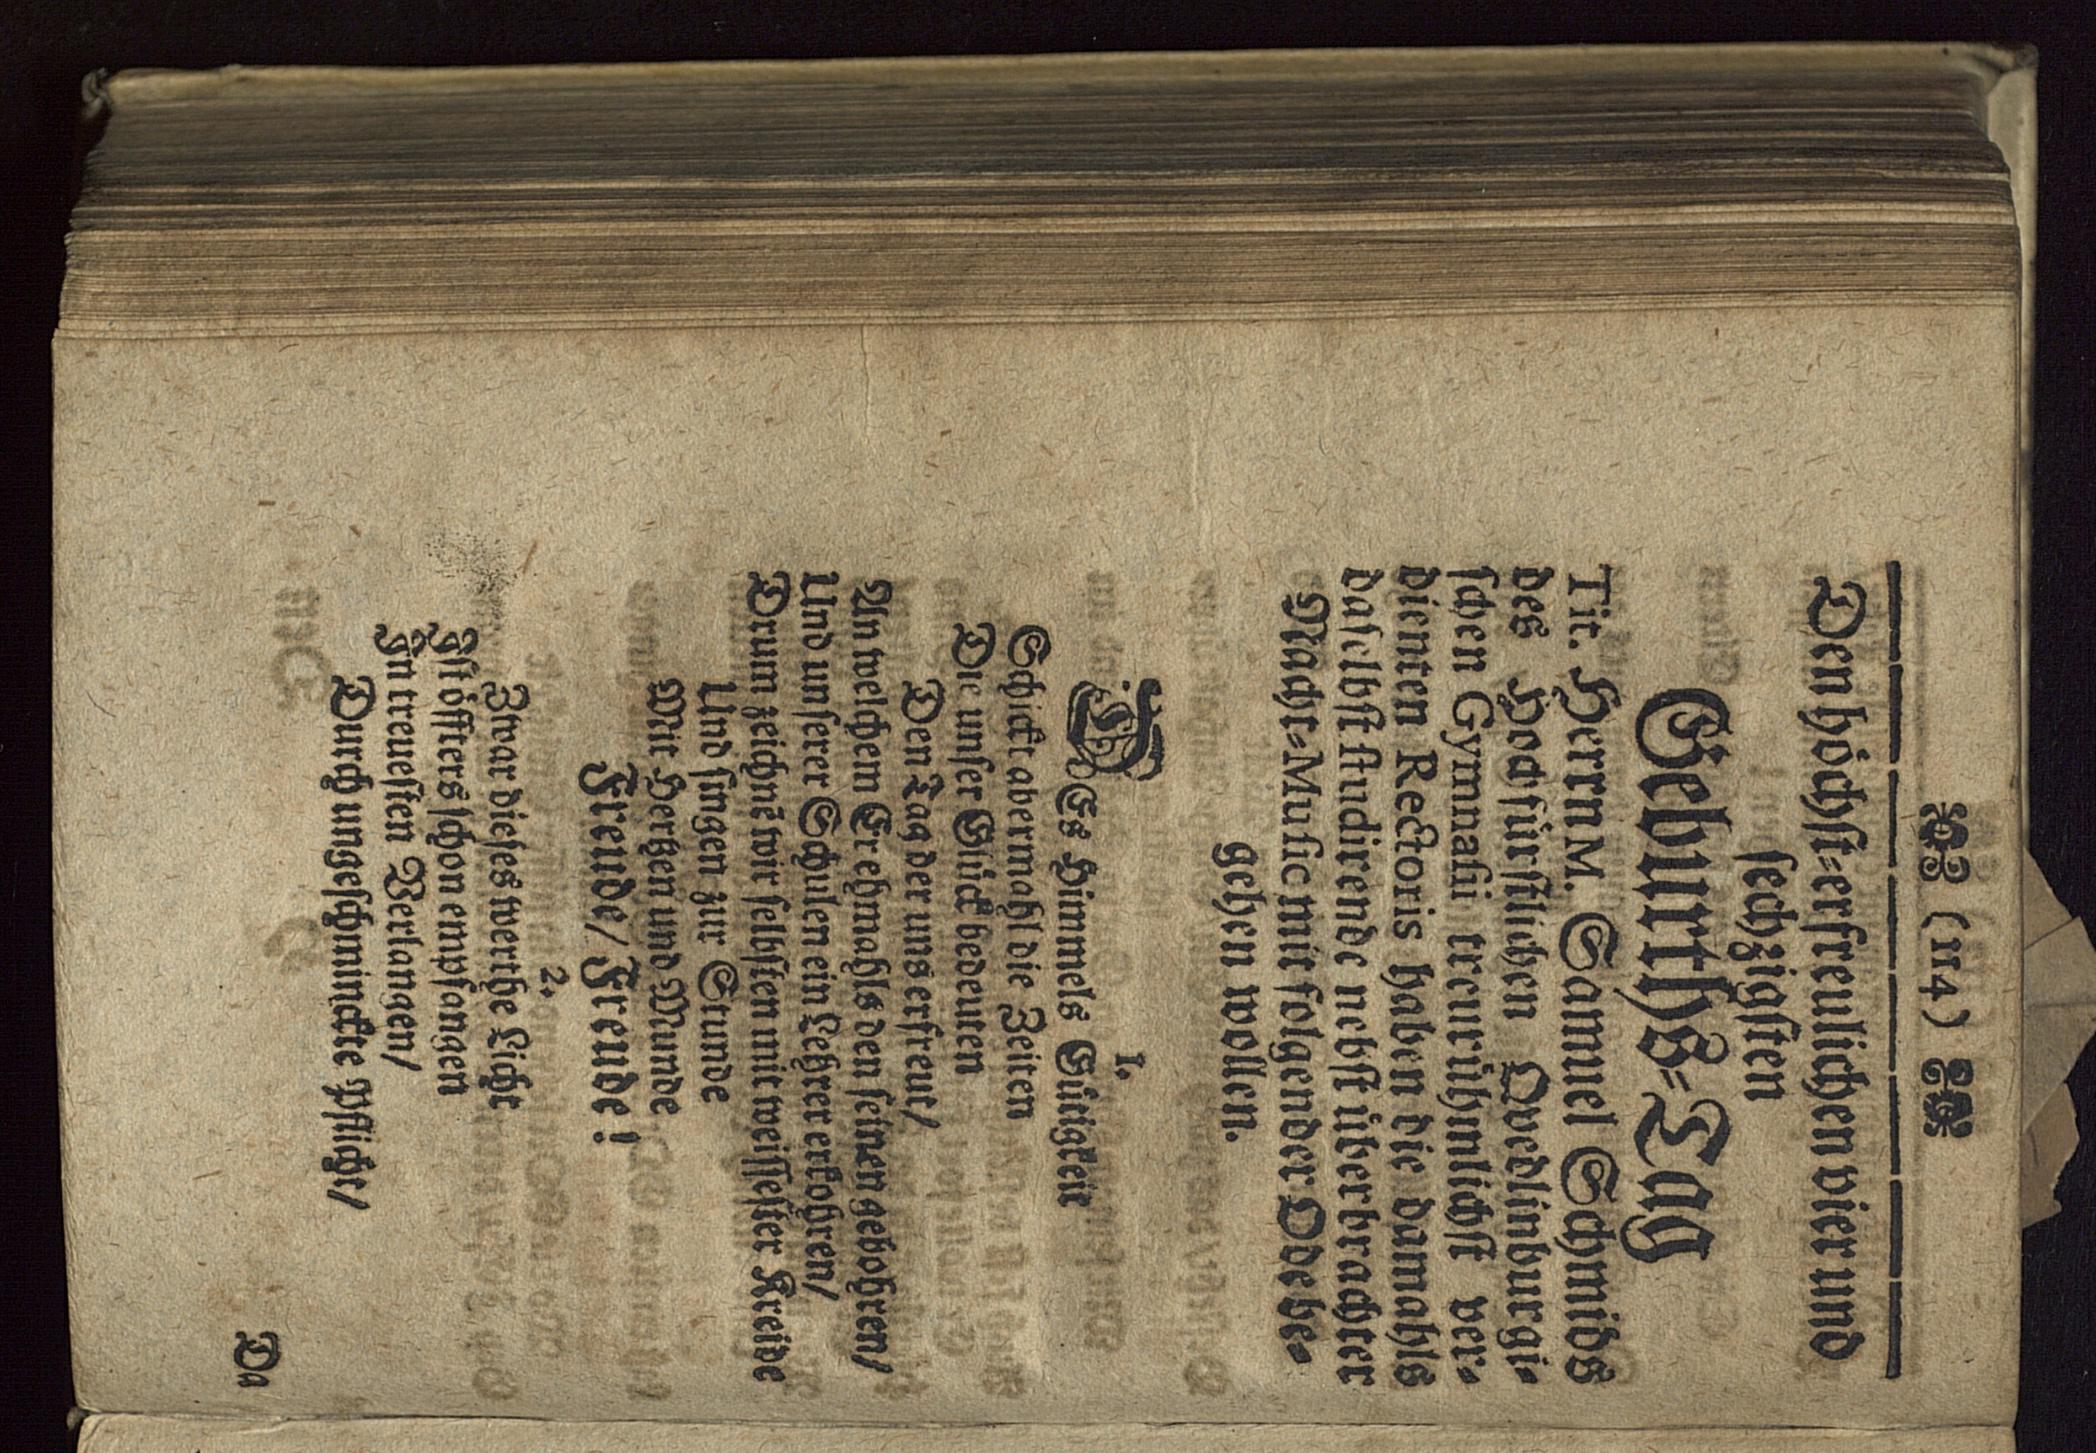 (114)
Den höchst-erfreulichen vier und
sechzigsten
Geburths-Tag
Tit. Herrn M. Samuel Schmids
des Hochfürstlichen Qvedlinburgi-
schen Gymnasii treurühmlichst ver-
dienten Rectoris haben die damahls
daselbst studirende nebst überbrachter
Nacht-Music mit folgender Ode be-
gehen wollen.
1.
DEs Himmels Gütigkeit
Schickt abermahl die Zeiten
Die unser Glück bedeuten
Den Tag der uns erfreut/
An welchem Er ehmahls den seinen gebohren/
Und unserer Schulen ein Lehrer erkohren/
Drum zeichnẽ wir selbsten mit weissester Kreide
Und singen zur Stunde
Mit Hertzen und Munde
Freude/ Freude!
2.
Zwar dieses werthe Licht
Ist öffters schon empfangen
In treuesten Verlangen/
Durch ungeschminckte Pflicht/
Da